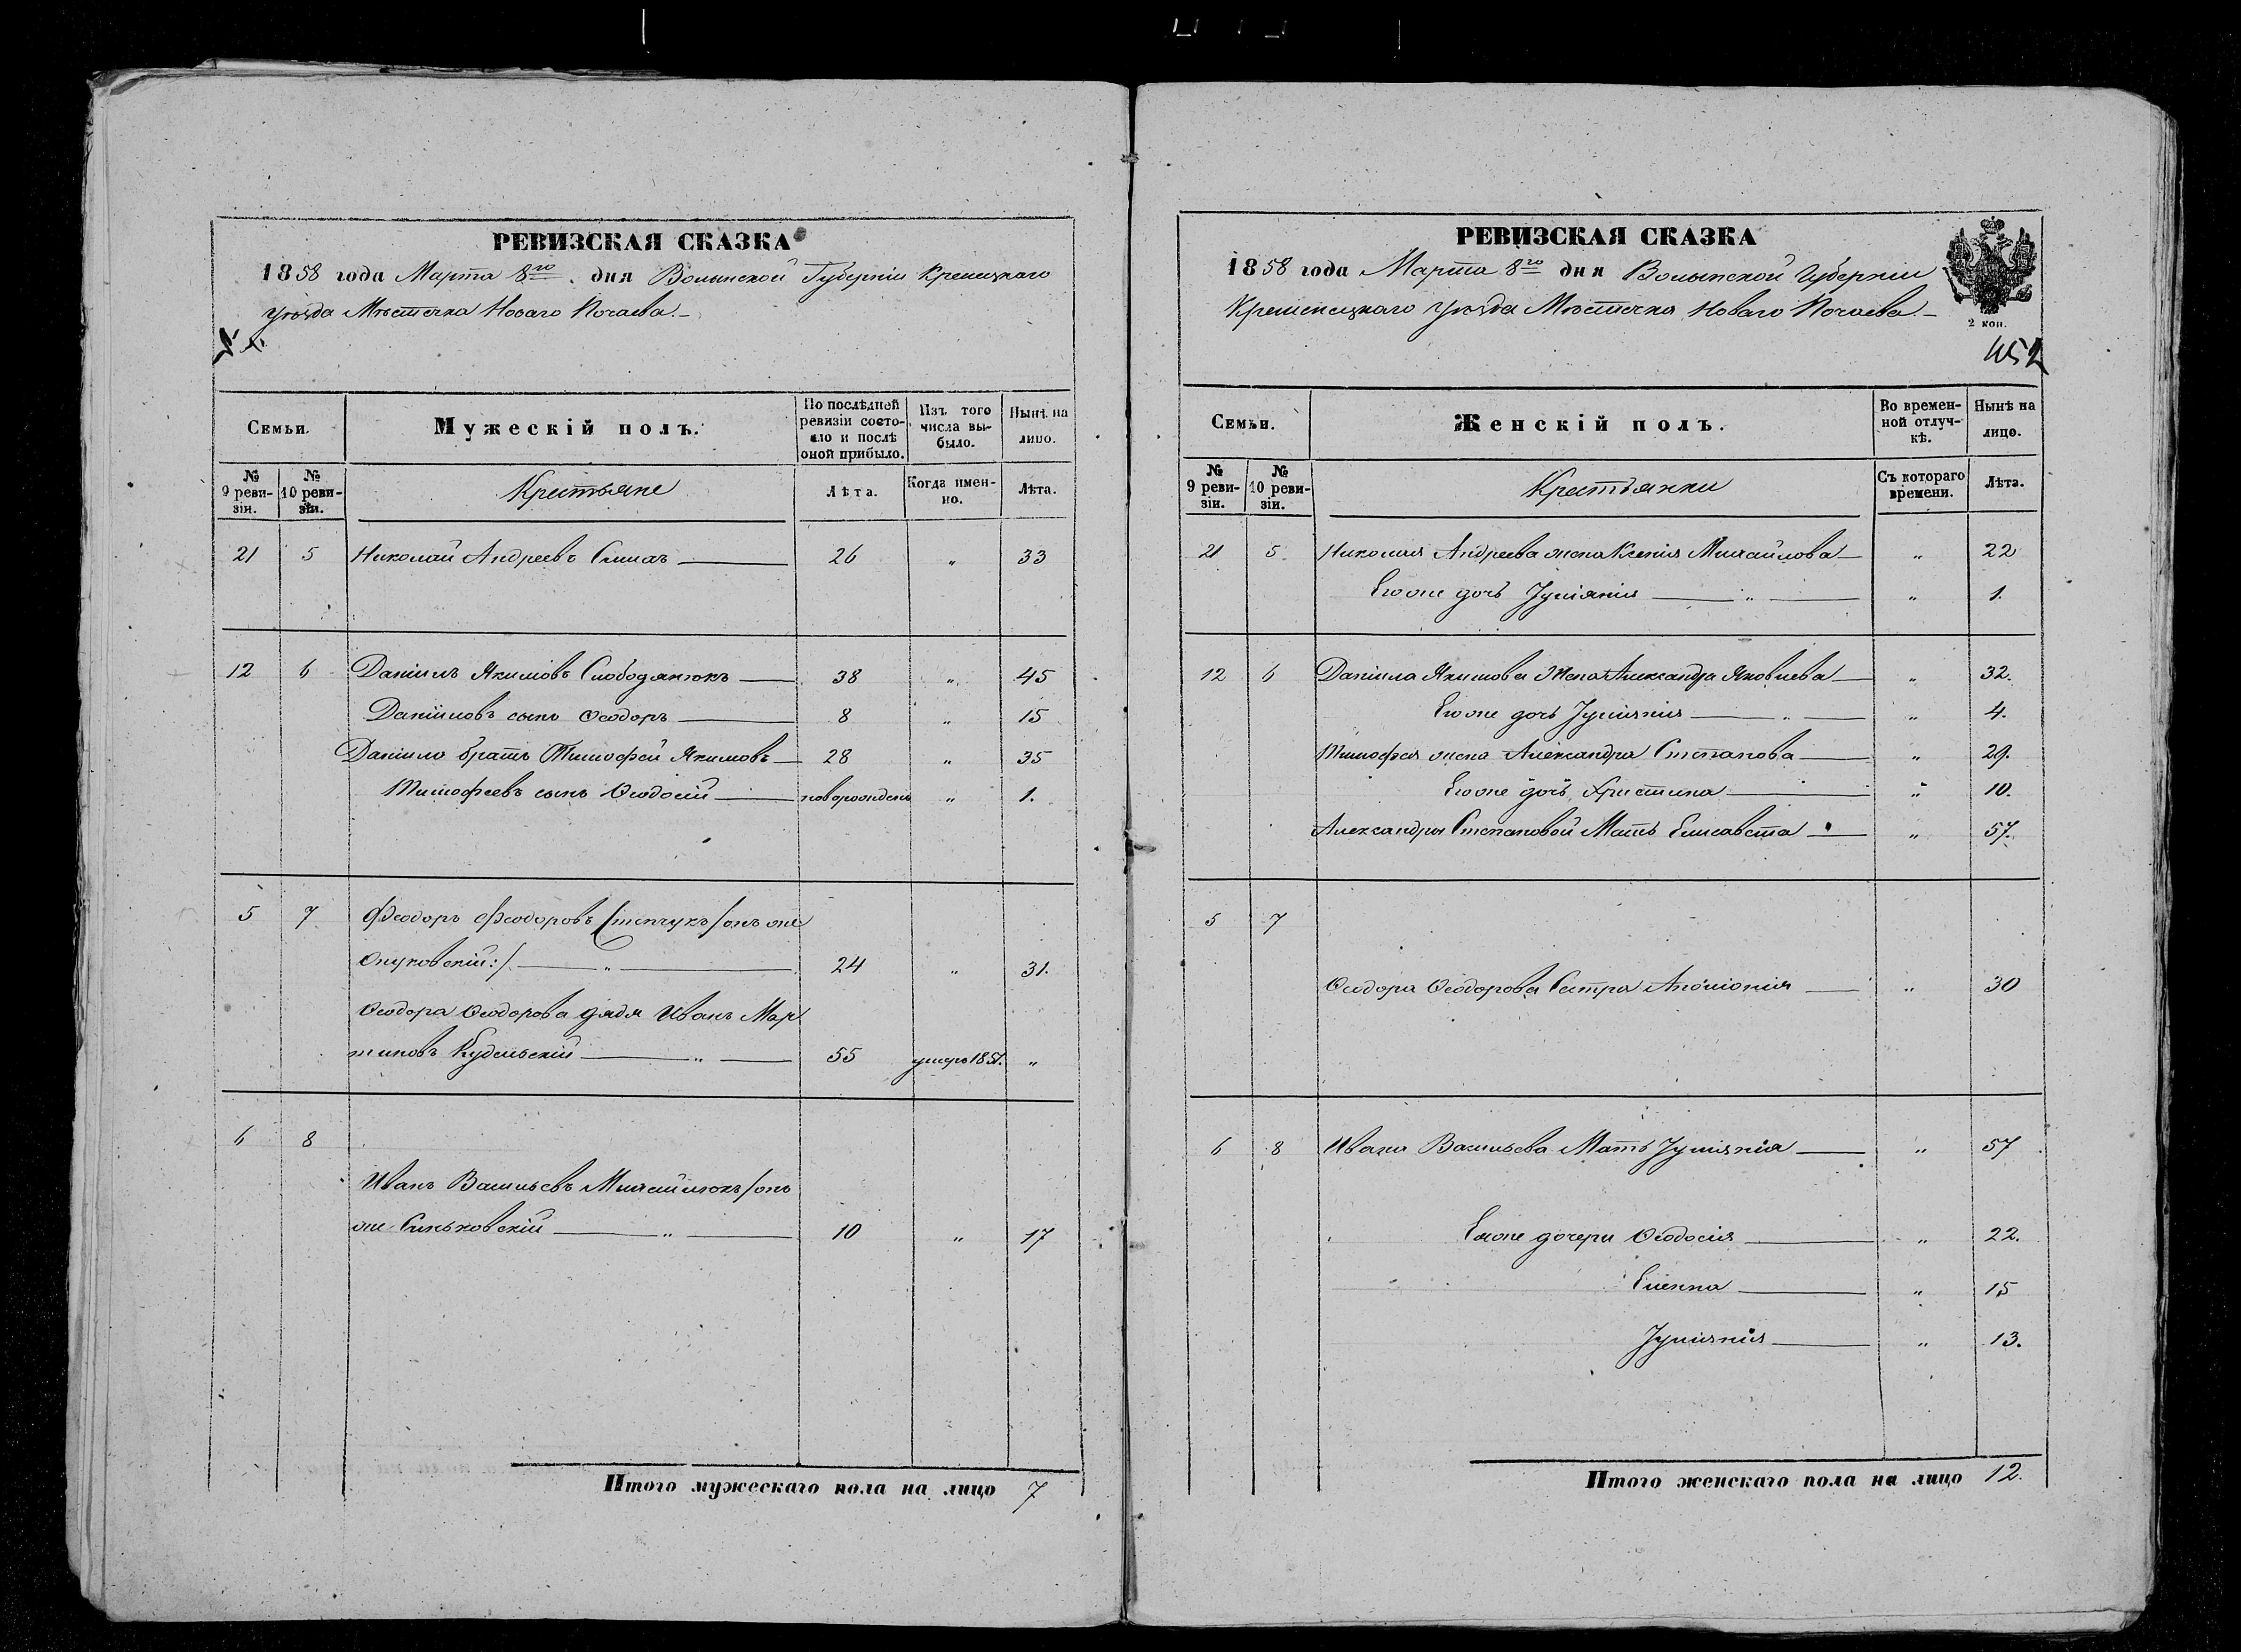 РЕВИЗСКАЯ СКАЗКА
1858 года Марта 8го дня Волынской Губерніи Кременецкаго
уѣзда Мѣстечка Новаго Почаева.
Семьи.
Мужескій полъ.
По послѣдней ревизіи состояло и послѣ оной прибыло.
Изъ того числа выбыло.
Нынѣ на лицо.
№ 9 ревизіи.
№ 10 ревизіи.
Крестьяне
Лѣта.
Когда именно.
Лѣта.
21 5 Николай Андреевъ 26 " 33
12 6 Даніилъ Якимовъ Слободянюкъ 38 " 45
Даніиловъ сынъ Ѳеодоръ 8 " 15
Даніило братъ Тимофей Якимовъ 28 " 35
Тимофеевъ сынъ Ѳеодосій новорожденъ " 1.
5 7 Феодоръ Феодоровъ Степчукъ /онъ же
24 " 31.
Ѳеодора Ѳеодорова дядя Иванъ Мар
тиновъ Кудельскій " 55 умеръ 1851. "
6 8
Иванъ Васильевъ Михайлюкъ /онъ
же Синьковскій " 10 " 17
Итого мужескаго пола на лицо 7
РЕВИЗСКАЯ СКАЗКА
1858 года Марта 8го дня Волынской Губерніи
Кременецкаго уѣзда Мѣстечка Новаго Почаева.
2 коп.
452
Семьи.
Женскій полъ.
Во временной отлучкѣ.
Нынѣ на лицо.
№ 9 ревизіи.
№ 10 ревизіи.
Крестьянки
Съ котораго времени.
Лѣта.
21 5 Николая Андреева жена Ксенія Михайлова " 22
Его же дочь Іуліянія " " 1.
12 6 Даніила Якимова Жена Александра Яковлева " 32.
Его же дочь Іуліянія " " 4.
Тимофея жена Александра Степанова " 29.
Его же дочь Христина " 10.
Александры Степановой Мать Елисавета " 57.
5 7
Ѳеодора Ѳеодорова Сестра Аполонія " 30
6 8 Ивана Васильева Мать Іуліянія " 57
Ея же дочери Ѳеодосія " 22.
Еленна " 15
Іуліянія " 13.
Итого женскаго пола на лицо 12.